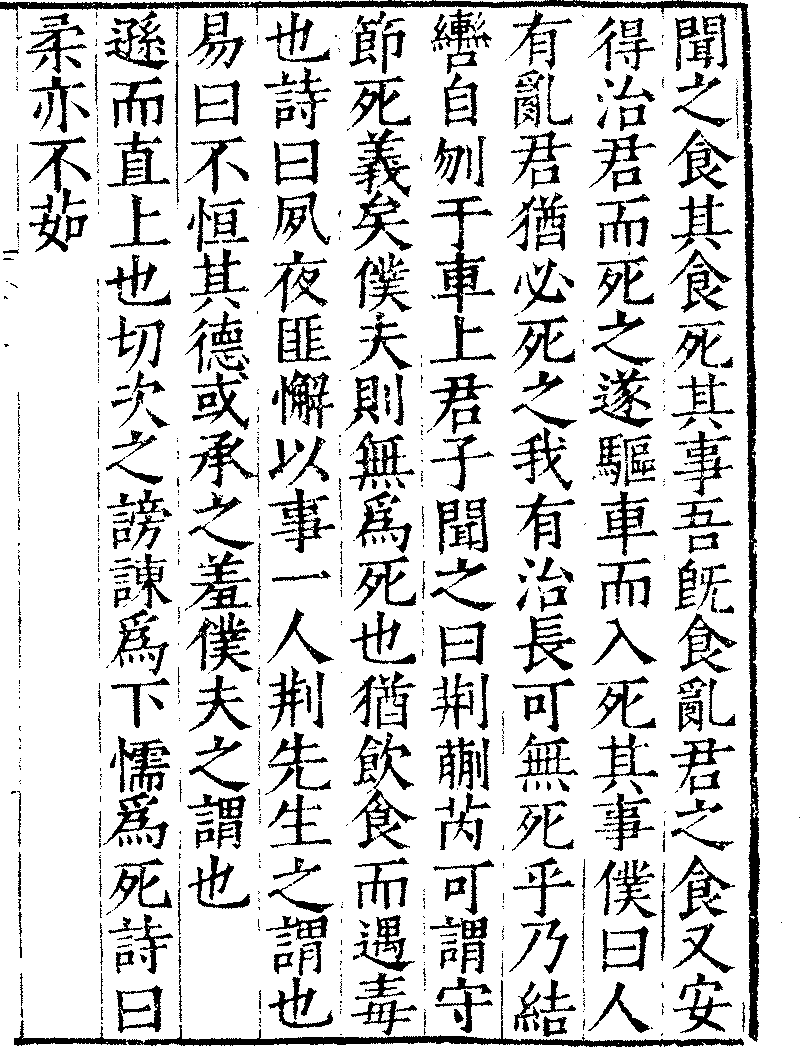 聞之食其食死其事吾旣食亂君之食又安
得治君而死之遂驅車而入死其事僕曰人
有亂君猶必死之我有治長可無死乎乃結
轡自刎于車上君子聞之曰荆蒯芮可謂守
節死義矣僕夫則無爲死也猶飲食而遇毒
也詩曰夙夜匪懈以事一人荆先生之謂也
易曰不恒其德或承之羞僕夫之謂也
遜而直上也切次之謗諫爲下懦爲死詩曰
柔亦不茹